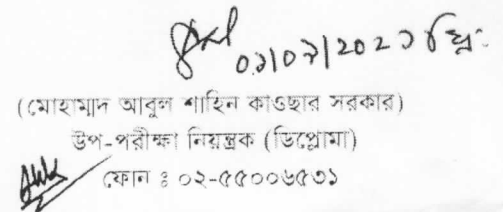 ০১/০৭/২০২১ খ্রি:
(মোহাম্মাদ আবুল শাহিন কাওছার সরকার)
উপ-পরীক্ষা নিয়ন্ত্রক (ডিপ্লোমা)
ফোন ঃ ০২-৫৫০০৬৫৩১